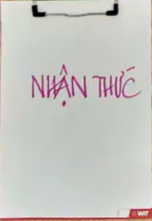 NHẬN THỨC